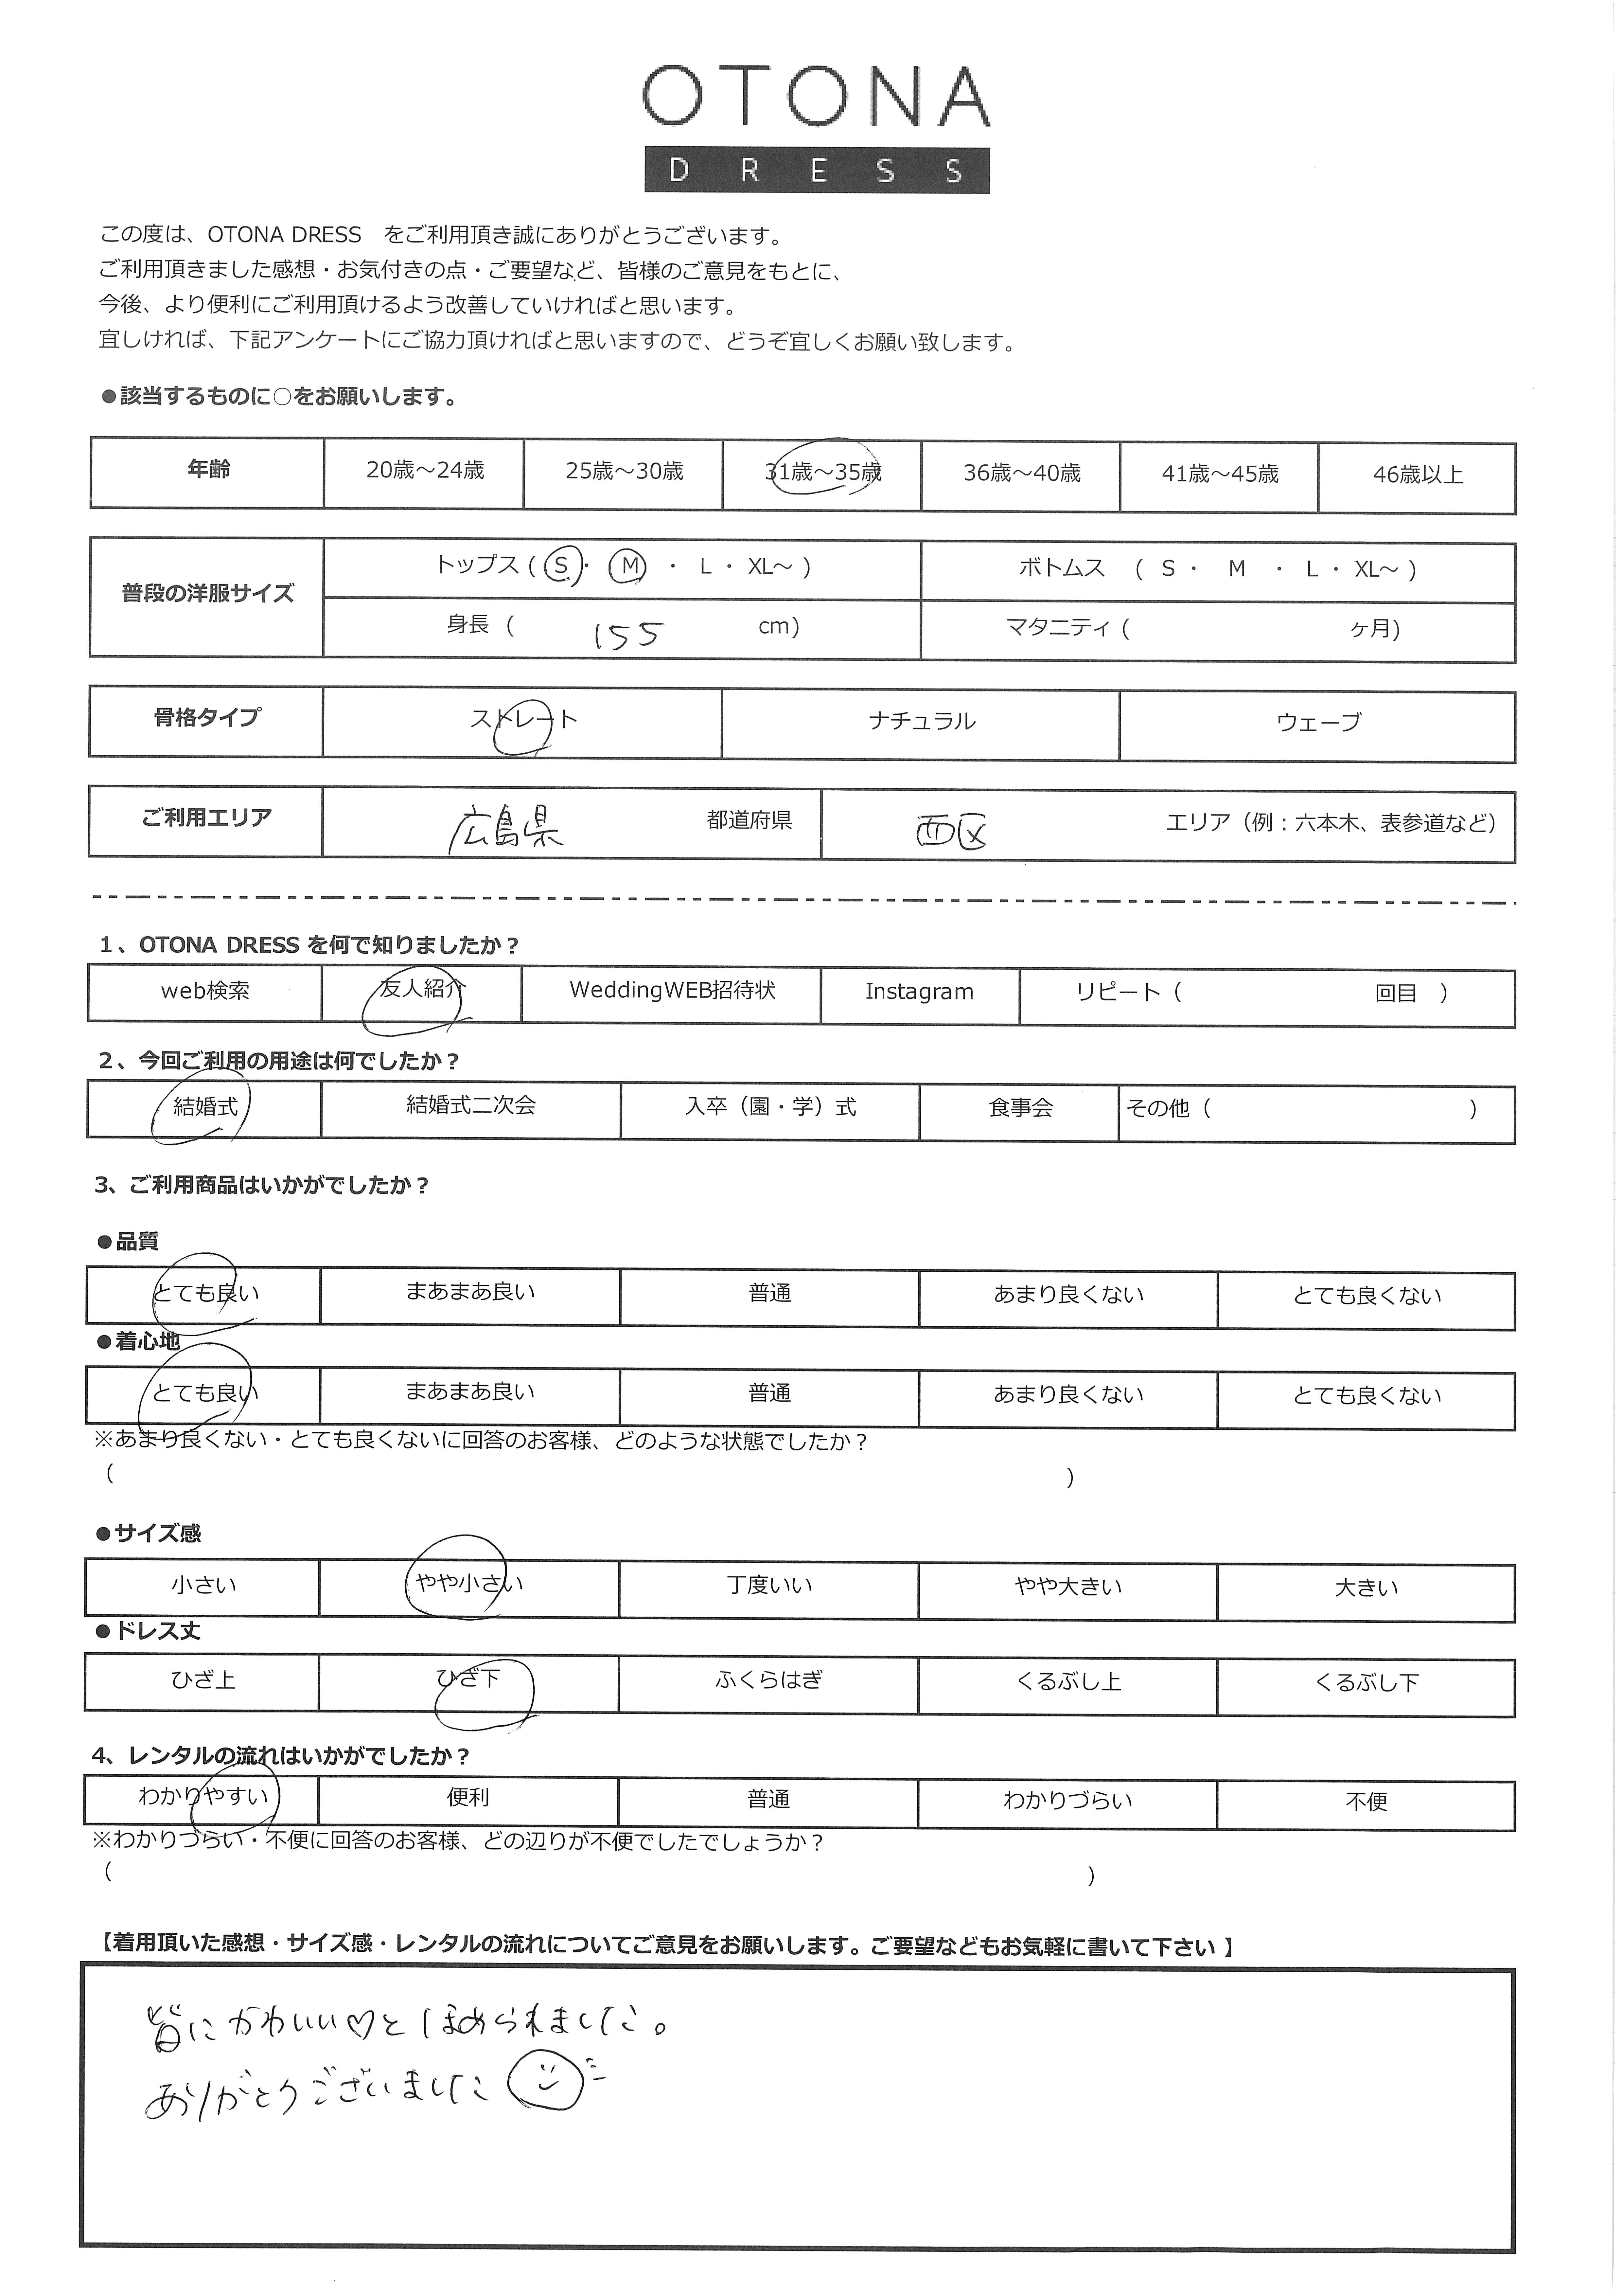 OTONA
DRESS
この度は、OTONA DRESS　をご利用頂き誠にありがとうございます。
ご利用頂きました感想・お気付きの点・ご要望など、皆様のご意見をもとに、
今後、より便利にご利用頂けるよう改善していければと思います。
宜しければ、下記アンケートにご協力頂ければと思いますので、どうぞ宜しくお願い致します。
●該当するものに○をお願いします。
年齢 20歳～24歳 25歳～30歳 31歳～35歳 36歳～40歳 41歳～45歳 46歳以上
普段の洋服サイズ トップス ( S ・ M ・ L ・ XL～ ) ボトムス ( S ・ M ・ L ・ XL～ )
身長 ( 155 cm) マタニティ ( ヶ月)
骨格タイプ ストレート ナチュラル ウェーブ
ご利用エリア 広島県 都道府県 西区 エリア（例：六本木、表参道など）
1、OTONA DRESS を何で知りましたか？
web検索 友人紹介 WeddingWEB招待状 Instagram リピート（ 回目 ）
2、今回ご利用の用途は何でしたか？
結婚式 結婚式二次会 入卒（園・学）式 食事会 その他（ ）
3、ご利用商品はいかがでしたか？
●品質
とても良い まあまあ良い 普通 あまり良くない とても良くない
●着心地
とても良い まあまあ良い 普通 あまり良くない とても良くない
※あまり良くない・とても良くないに回答のお客様、どのような状態でしたか？
（ ）
●サイズ感
小さい やや小さい 丁度いい やや大きい 大きい
●ドレス丈
ひざ上 ひざ下 ふくらはぎ くるぶし上 くるぶし下
4、レンタルの流れはいかがでしたか？
わかりやすい 便利 普通 わかりづらい 不便
※わかりづらい・不便に回答のお客様、どの辺りが不便でしたでしょうか？
（ ）
【着用頂いた感想・サイズ感・レンタルの流れについてご意見をお願いします。ご要望などもお気軽に書いて下さい】
皆にかわいい♡とほめられました。
ありがとうございました